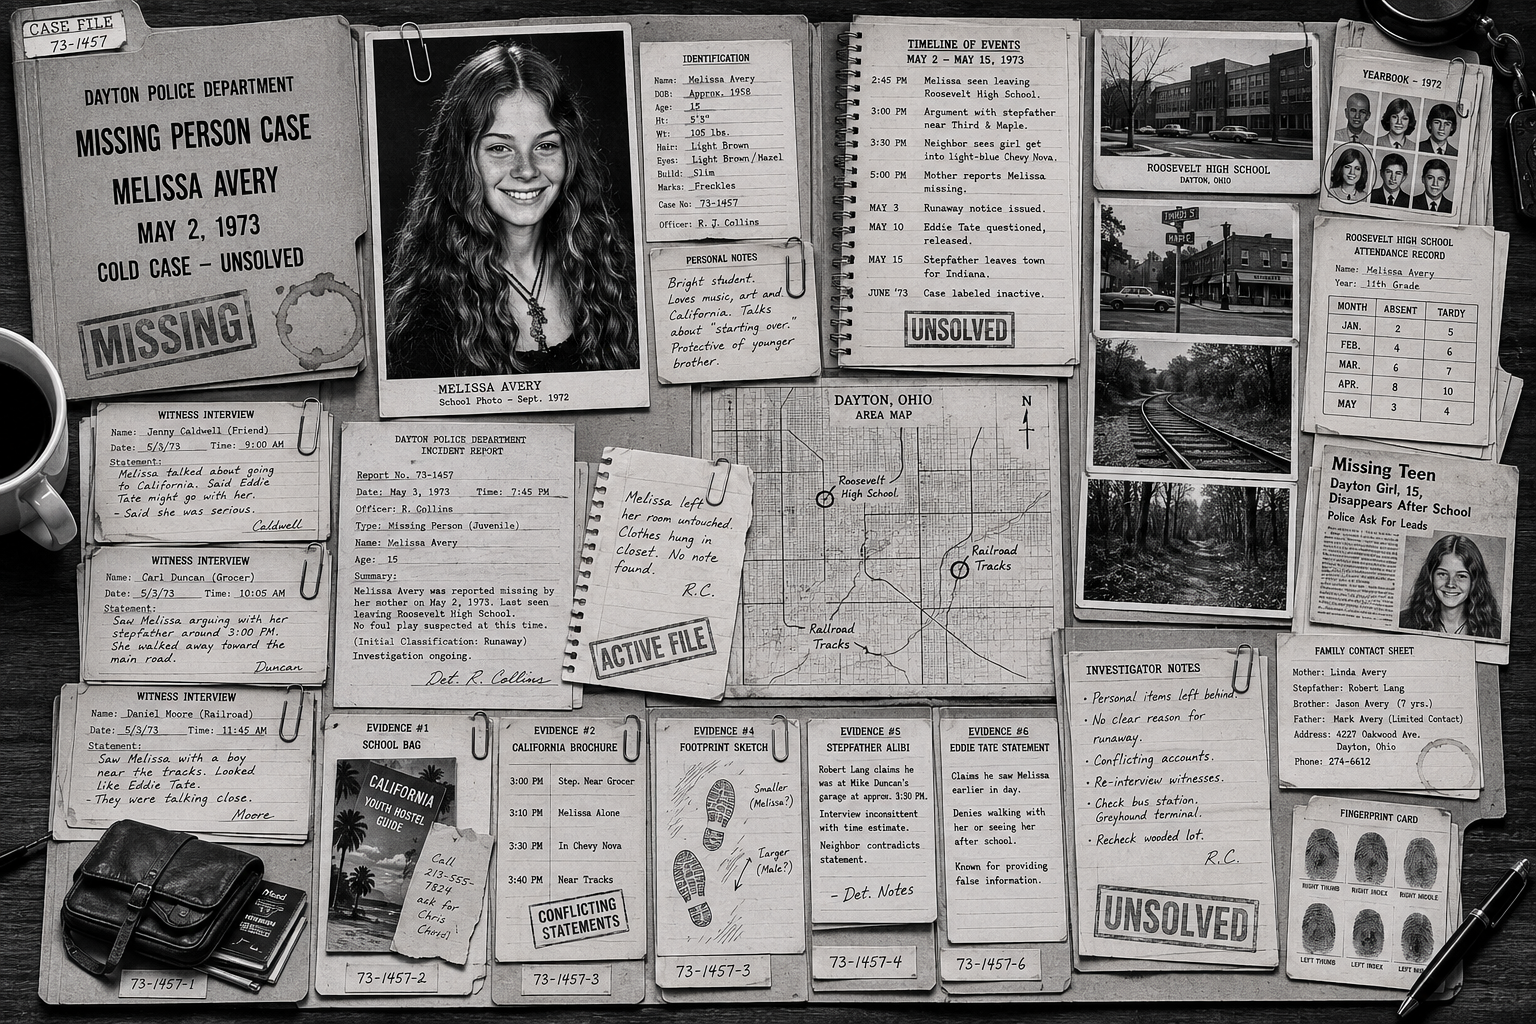 CASE FILE
73-1457
DAYTON POLICE DEPARTMENT
MISSING PERSON CASE
MELISSA AVERY
MAY 2, 1973
COLD CASE – UNSOLVED
MISSING
MELISSA AVERY
School Photo - Sept. 1972
IDENTIFICATION
Name: Melissa Avery
DOB: Approx. 1958
Age: 15
Ht: 5'3"
Wt: 105 lbs.
Hair: Light Brown
Eyes: Light Brown/Hazel
Build: Slim
Marks: Freckles
Case No: 73-1457
Officer: R. J. Collins
PERSONAL NOTES
Bright student.
Loves music, art and
California. Talks
about "starting over."
Protective of younger
brother.
TIMELINE OF EVENTS
MAY 2 – MAY 15, 1973
2:45 PM Melissa seen leaving
Roosevelt High School.
3:00 PM Argument with stepfather
near Third & Maple.
3:30 PM Neighbor sees girl get
into light-blue Chevy Nova.
5:00 PM Mother reports Melissa
missing.
MAY 3 Runaway notice issued.
MAY 10 Eddie Tate questioned,
released.
MAY 15 Stepfather leaves town
for Indiana.
JUNE '73 Case labeled inactive.
UNSOLVED
ROOSEVELT HIGH SCHOOL
DAYTON, OHIO
YEARBOOK - 1972
ROOSEVELT HIGH SCHOOL
ATTENDANCE RECORD
Name: Melissa Avery
Year: 11th Grade
MONTH ABSENT TARDY
JAN. 2 5
FEB. 4 6
MAR. 6 7
APR. 8 10
MAY 3 4
Missing Teen
Dayton Girl, 15,
Disappears After School
Police Ask For Leads
WITNESS INTERVIEW
Name: Jenny Caldwell (Friend)
Date: 5/3/73 Time: 9:00 AM
Statement:
Melissa talked about going
to California. Said Eddie
Tate might go with her.
- Said she was serious.
Caldwell
WITNESS INTERVIEW
Name: Carl Duncan (Grocer)
Date: 5/3/73 Time: 10:05 AM
Statement:
Saw Melissa arguing with her
stepfather around 3:00 PM.
She walked away toward the
main road.
Duncan
WITNESS INTERVIEW
Name: Daniel Moore (Railroad)
Date: 5/3/73 Time: 11:45 AM
Statement:
Saw Melissa with a boy
near the tracks. Looked
like Eddie Tate.
- They were talking close.
Moore
DAYTON POLICE DEPARTMENT
INCIDENT REPORT
Report No. 73-1457
Date: May 3, 1973 Time: 7:45 PM
Officer: R. Collins
Type: Missing Person (Juvenile)
Name: Melissa Avery
Age: 15
Summary:
Melissa Avery was reported missing by
her mother on May 2, 1973. Last seen
leaving Roosevelt High School.
No foul play suspected at this time.
(Initial Classification: Runaway)
Investigation ongoing.
Det. R. Collins
Melissa left
her room untouched.
Clothes hung in
closet. No note
found.
R.C.
ACTIVE FILE
DAYTON, OHIO
AREA MAP
N
Roosevelt
High School
Railroad
Tracks
Rallroad
Tracks
73-1457-1
EVIDENCE #1
SCHOOL BAG
CALIFORNIA
YOUTH HOSTEL
GUIDE
Call
213-555-
7824
ask for
Chris
73-1457-2
EVIDENCE #2
CALIFORNIA BROCHURE
3:00 PM Step. Near Grocer
3:10 PM Melissa Alone
3:30 PM In Chevy Nova
3:40 PM Near Tracks
CONFLICTING
STATEMENTS
73-1457-3
EVIDENCE #4
FOOTPRINT SKETCH
Smaller
(Melissa?)
Targer
(Male?)
73-1457-3
EVIDENCE #5
STEPFATHER ALIBI
Robert Lang claims he
was at Mike Duncan's
garage at approx. 3:30 PM.
Interview inconsittent
with time estimate.
Neighbor contradicts
statement.
- Det. Notes
73-1457-4
EVIDENCE #6
EDDIE TATE STATEMENT
Claims he saw Melissa
earlier in day.
Denies walking with
her or seeing her
after school.
Known for providing
false information.
73-1457-6
INVESTIGATOR NOTES
• Personal items left behind.
• No clear reason for
runaway.
• Conflicting accounts.
• Re-interview witnesses.
• Check bus station.
Greyhound terminal.
• Recheck wooded lot.
R.C.
UNSOLVED
FAMILY CONTACT SHEET
Mother: Linda Avery
Stepfather: Robert Lang
Brother: Jason Avery (7 yrs.)
Father: Mark Avery (Limited Contact)
Address: 4227 Oakwood Ave.
Dayton, Ohio
Phone: 274-6612
FINGERPRINT CARD
RIGHT THUMB RIGHT INDEX RIGHT
LEFT THUMB LEFT INDEX LEFT